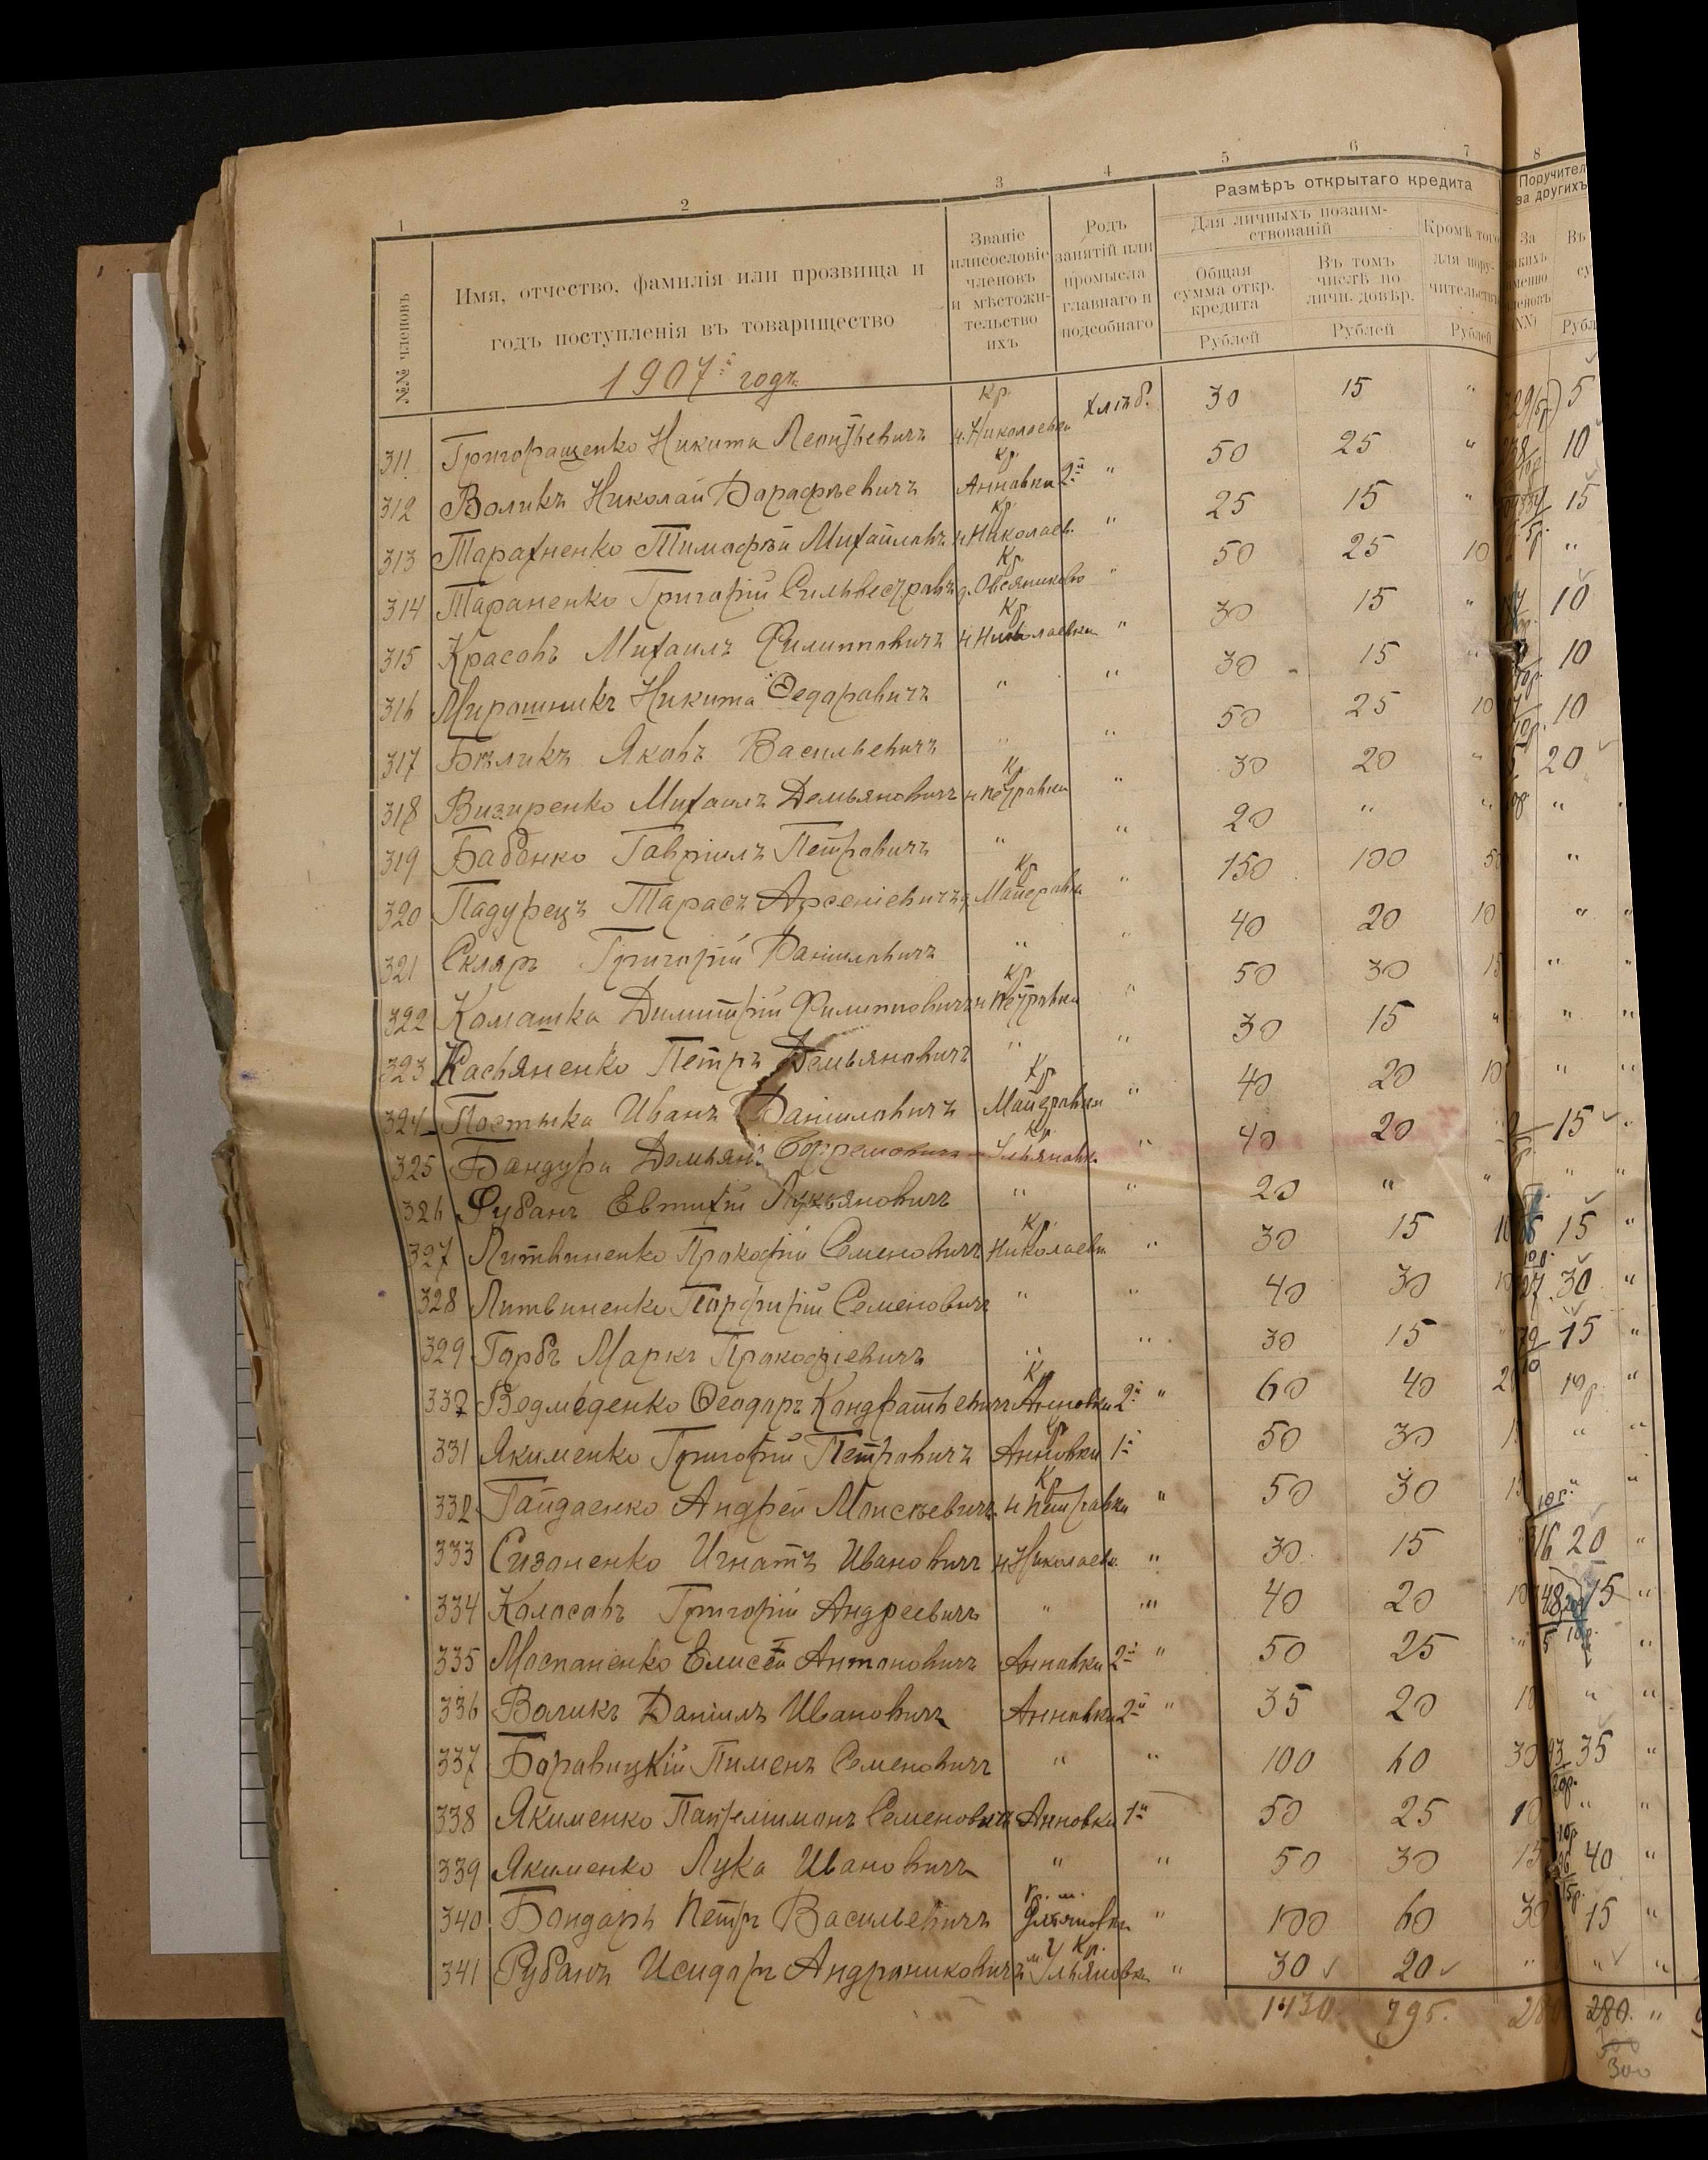 1 2 3 4 5 6 7 8
№№ членовъ
Имя, отчество, фамилія или прозвища и
годъ поступленія въ товарищество
1907й годъ
Званіе
илисословіе
членовъ
и мѣстожи-
тельство
ихъ
Родъ
занятій или
промысла
главнаго и
подсобнаго
Размѣръ открытаго кредита
Для личныхъ позаим-
ствованій
Общая
сумма откр.
кредита
Рублей
Въ томъ
числѣ по
личн. довѣр.
Рублей
Кромѣ того
для пору-
чительства
Рублей
Поручител
за другихъ
За
Въ
Рубл
311 Григоращенко Никита Леонтьевичъ Кр. н. Николаевка Хлѣб. 30 15 " 5
312 Воликъ Николай Дорофѣевичъ Кр. Анновка 2й " 50 25 " 10
313 Тарахненко Тимофѣй Михайловъ Кр. н Николаев. " 25 15 " 15
314 Тараненко Григорій Сильвестровъ Кр. д. Овсяниково " 50 25 10 "
315 Красовъ Михаилъ Филипповичъ Кр. н Николаевка " 30 15 " 10
316 Мирошникъ Никита Ѳедоровичъ " " 30 15 " 10
317 Бѣликъ Яковъ Васильевичъ " " 50 25 10 10
318 Визиренко Михаилъ Демьяновичъ Кр. н Петровка " 30 20 " 20
319 Бабенко Гавріилъ Петровичъ " " 20 " " "
320 Падурецъ Тарасъ Арсеніевичъ Кр. Майеровка " 150 100 50 "
321 Скляръ Григорій Даніиловичъ " " 40 20 10 " "
322 Комашка Димитрій Филипповичъ Кр. н Петровка " 50 30 15 " "
323 Касьяненко Петръ Демьяновичъ " " 30 15 " " "
324 Постыка Иванъ Даніиловичъ Кр. Майеровка " 40 20 10 " "
325 Бандура Демьянъ Ефремовичъ Кр. Ульяновк. " 40 20 " 15 "
326 Рубанъ Евтихій Лукьяновичъ " " 20 " " " "
327 Литвиненко Прокофій Семеновичъ Кр. Николаевк " 30 15 10 15 "
328 Литвиненко Порфирій Семеновичъ " " 40 30 10 27 30 "
329 Горбъ Маркъ Прокофіевичъ " " 30 15 " 15 "
330 Ведмеденко Ѳеодоръ Кондратьевичъ Кр. Анновка 2й " 60 40 20 "
331 Якименко Григорій Петровичъ Кр. Анновки 1й 50 30 15 " "
332 Гайдаенко Андрей Моисѣевичъ Кр. н Петровка " 50 30 15 "
333 Сизоненко Игнатъ Ивановичъ н Николаевк. " 30 15 " 16 20 "
334 Колосовъ Григорій Андреевичъ " " 40 20 10 48 15 "
335 Моспаненко Елисей Антоновичъ Анновки 2й " 50 25 " "
336 Воликъ Даніилъ Ивановичъ Анновки 2й " 35 20 10 " "
337 Боравицкій Пименъ Семеновичъ " " 100 60 30 35 "
338 Якименко Пантелимонъ Семеновичъ Анновки 1й 50 25 10 " "
339 Якименко Лука Ивановичъ " " 50 30 15 40 "
340 Бондарь Петръ Васильевичъ Ульяновка " 100 60 30 15 "
341 Рубанъ Исидоръ Андрониковичъ Кр. Ульяновка " 30 20 " " "
1430 795. 280 280. "
300